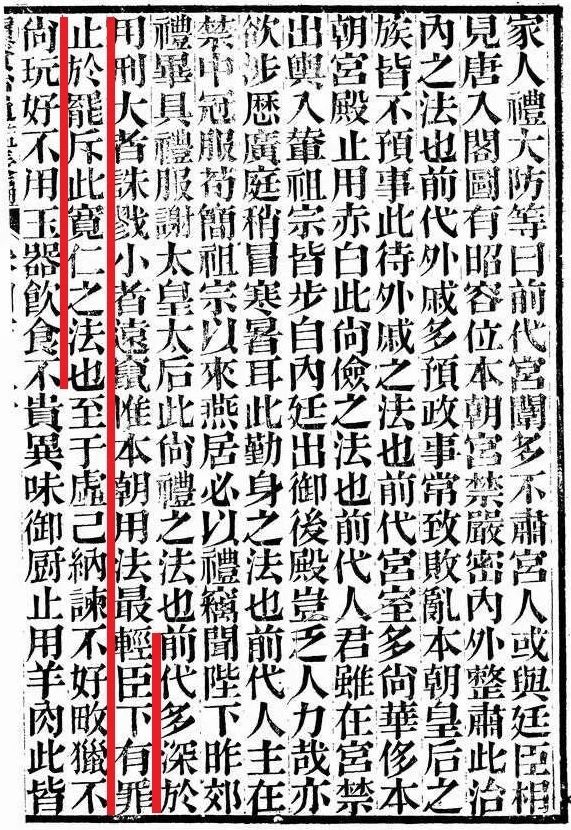 家人禮大防等曰前代宮闈多不肅宮人或與廷臣相
見唐入閤圖有昭容位本朝宮禁嚴密內外整肅此治
內之法也前代外戚多預政事常致敗亂本朝皇后之
族皆不預事此待外戚之法也前代宮室多尚華侈本
朝宮殿止用赤白此尚儉之法也前代人君雖在宮禁
出輿入輦祖宗皆步自內廷出御後殿豈乏人力哉亦
欲涉歷廣庭稍冒寒暑耳此勤身之法也前代人主在
禁中冠服苟簡祖宗以來燕居必以禮竊聞陛下昨郊
禮畢具禮服謝太皇太后此尚禮之法也前代多深於
用刑大者誅戮小者遠竄惟本朝用法最輕臣下有罪
止於罷斥此寬仁之法也至于虛己納諫不好畋獵不
尚玩好不用玉器飲食不貴異味御厨止用羊肉此皆